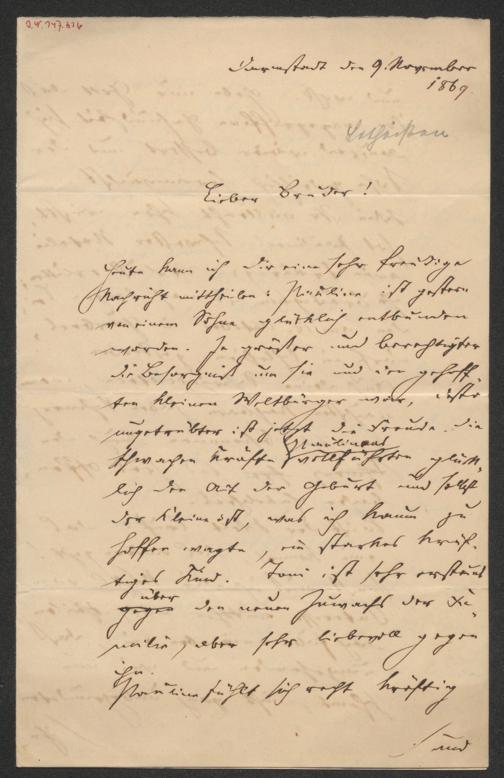 Darmstadt den 9. November
1869.
Lieber Bruder!
Heute kann ich Dir eine sehr freudige
Nachricht mittheilen: Pauline ist gestern
von einem Sohne glücklich entbunden
worden. Je größer und berechtigter
die Besorgniß um sie und den gehoff-
ten kleinen Weltbürger war, desto
ungetrübter ist jetzt die Freude. Die
schwachen Kräfte Paulinens vollführten glück-
lich den Act der Geburt und selbst
der Kleine ist, was ich kaum zu
hoffen wagte, ein starkes kräf-
tiges Kind. Toni ist sehr erstaunt
über
gegen den neuen Zuwachs der Fa-
milie, aber sehr liebevoll gegen
ihn.
Pauline fühlt sich recht kräftig
und